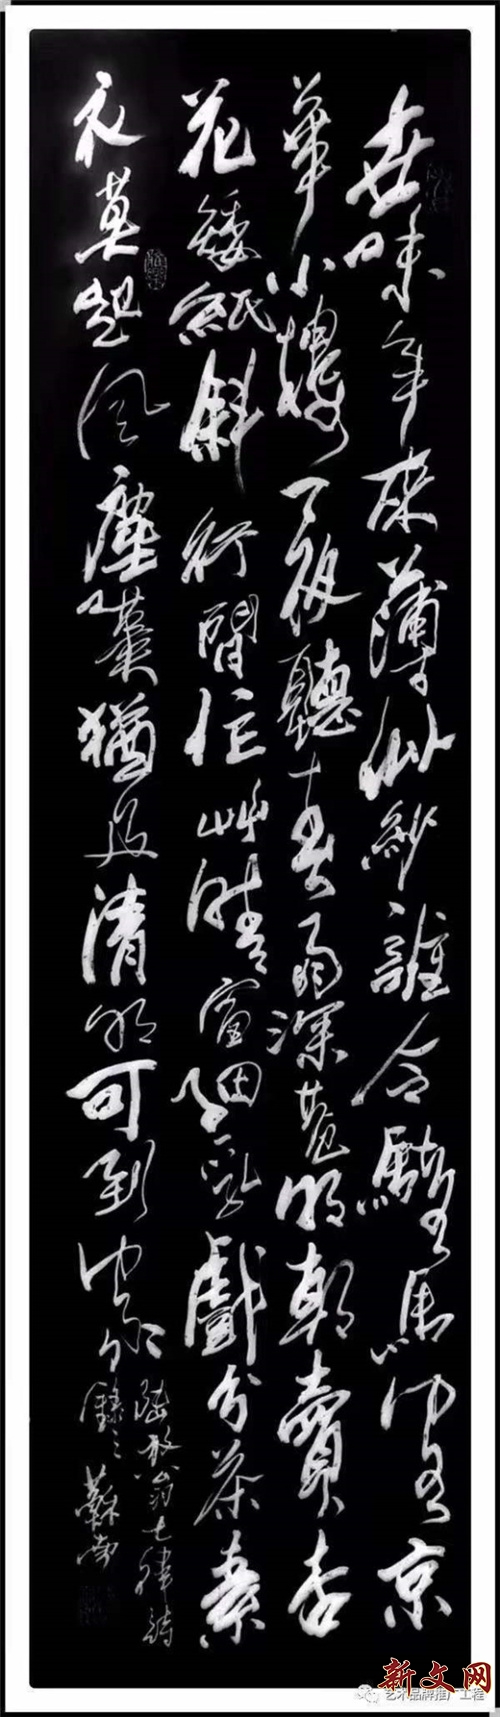 世味年來薄似紗誰令騎馬客京
華小樓一夜聽春雨深巷明朝賣杏
花矮紙斜行閒作草晴窗細乳戲分茶素
衣莫起風塵嘆猶及清明可到家
陸放翁七律詩
錄之
新文网
艺术品牌推广工程